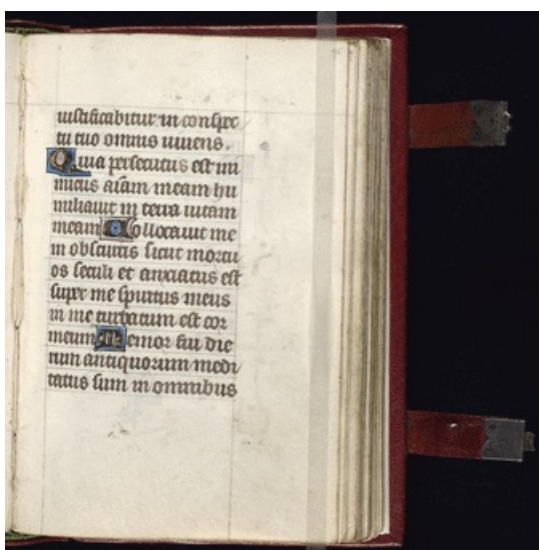 iustificabitur in conspec
tu tuo omnis uiuens.
Quia persecutus est ini
micus aīam meam hu
miliauit in terra uitam
meam Collocauit me
in obscuris sicut mortu
os seculi et anxiatus est
super me spiritus meus
in me turbatum est cor
meum Memor fui die
rum antiquorum medi
tatus sum in omnibus